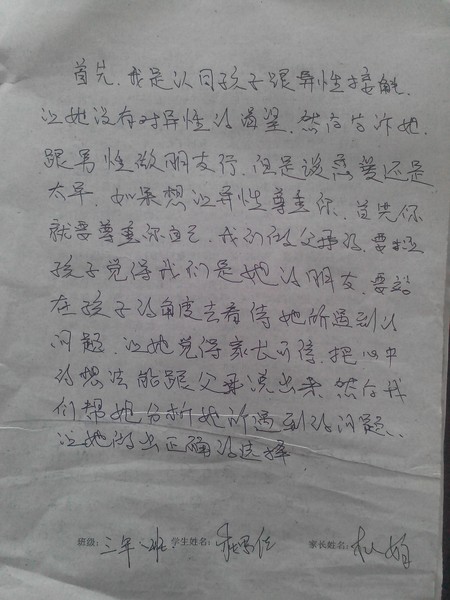 首先,我是认同孩子跟异性接触,
让她没有对异性的渴望,然后告诉她,
跟男性做朋友行,但是谈恋爱还是
太早,如果想让异性尊重你,首先你
就要尊重你自己,我们做父母的,要让
孩子觉得我们是她的朋友,要站
在孩子的角度去看待她所遇到的
问题,让她觉得家长可信,把心中
的想法能跟父母说出来,然后我
们帮她分析她所遇到的问题,
让她做出正确的选择
班级:三年 班 学生姓名: 家长姓名: